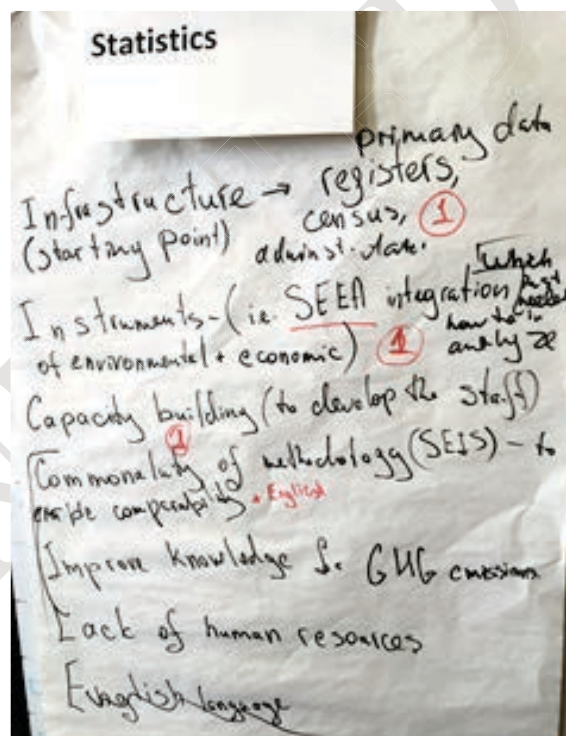 Statistics
primary data
Infrastructure → registers,
(starting point) census, 1
administ. data.
Instruments - (i.e. SEEA integration which
of environmental + economic) 1 how to
analyze
Capacity building (to develop the staff)
1
Commonality of methodology (SEIS) - to
comparability + English
Improve knowledge f. GHG emissions
Lack of human resources
language